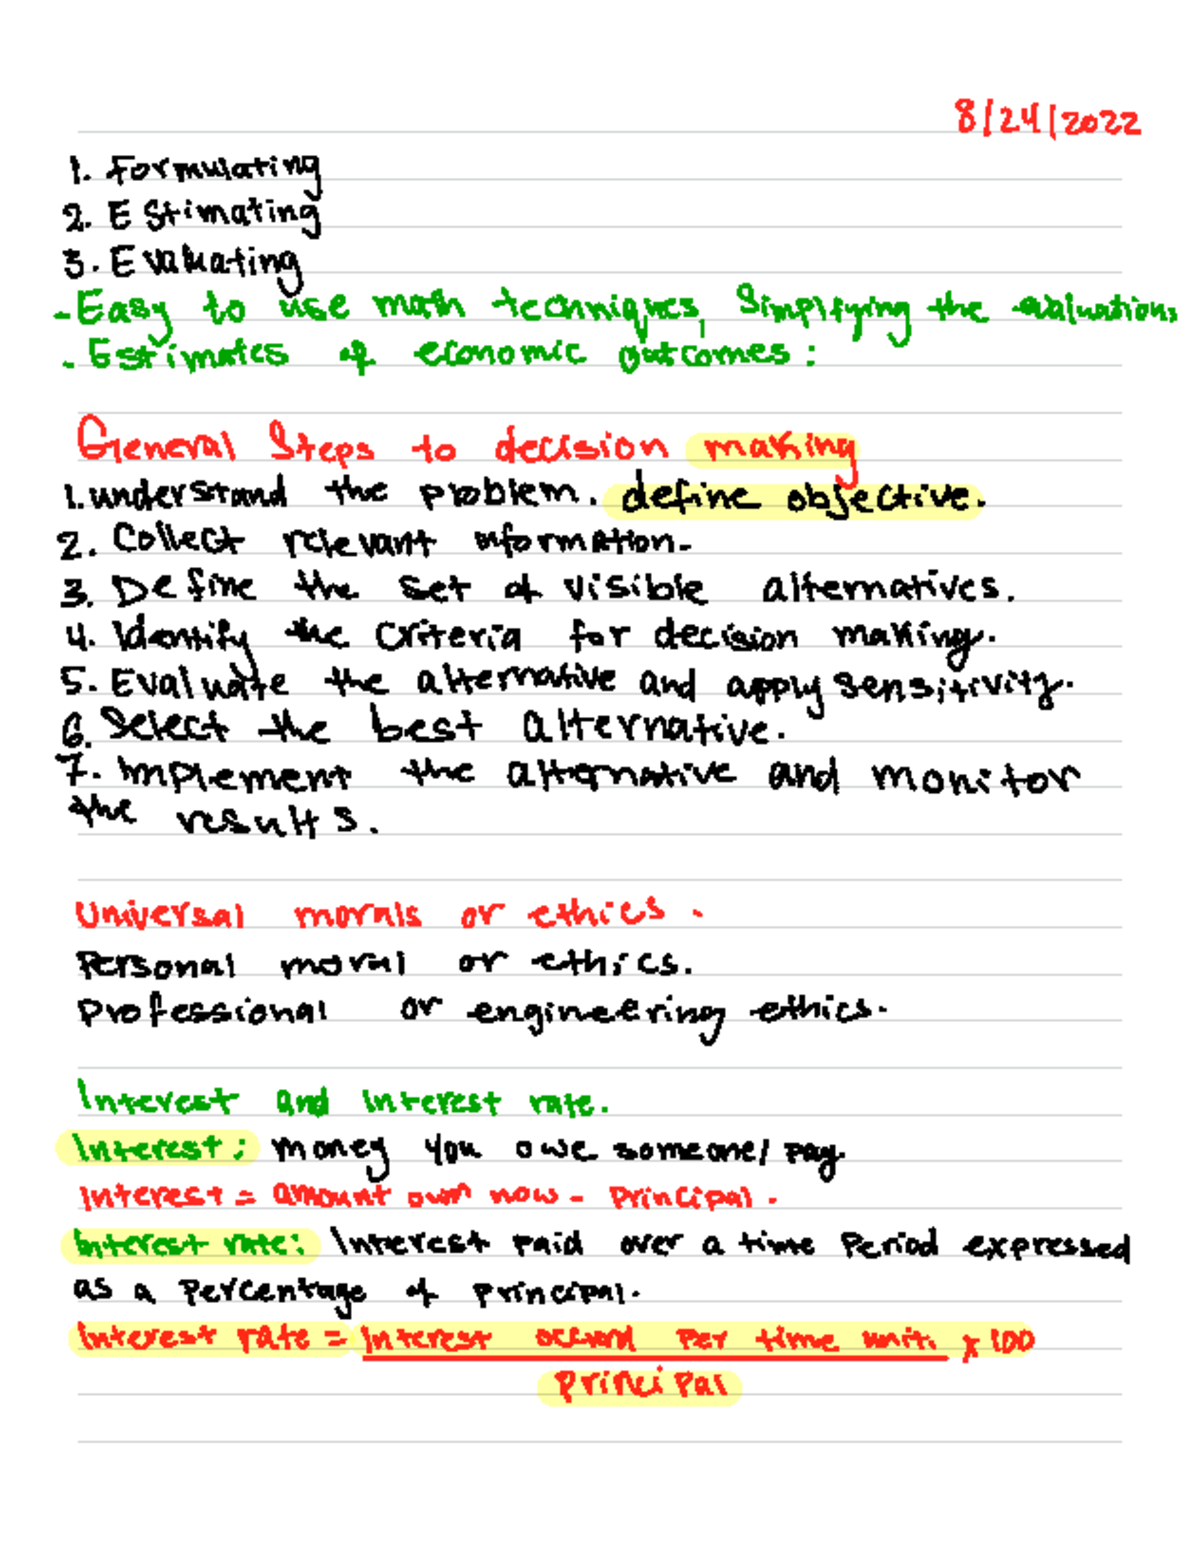 8/24/2022
1. Formulating
2. Estimating
3. Evaluating
- Easy to use math techniques, Simplifying the evaluations
- Estimates of economic outcomes:
General Steps to decision making
1. understand the problem. define objective.
2. Collect relevant information.
3. Define the set of visible alternatives.
4. Identify the criteria for decision making.
5. Evaluate the alternative and apply sensitivity.
6. Select the best alternative.
7. Implement the alternative and monitor
the results.
Universal morals or ethics.
Personal moral or ethics.
Professional or engineering ethics.
Interest and interest rate.
Interest: money you owe someone/ pay.
Interest = amount own now - principal.
Interest rate: Interest paid over a time Period expressed
as a Percentage of principal.
Interest rate = Interest per time unit. x 100
principal